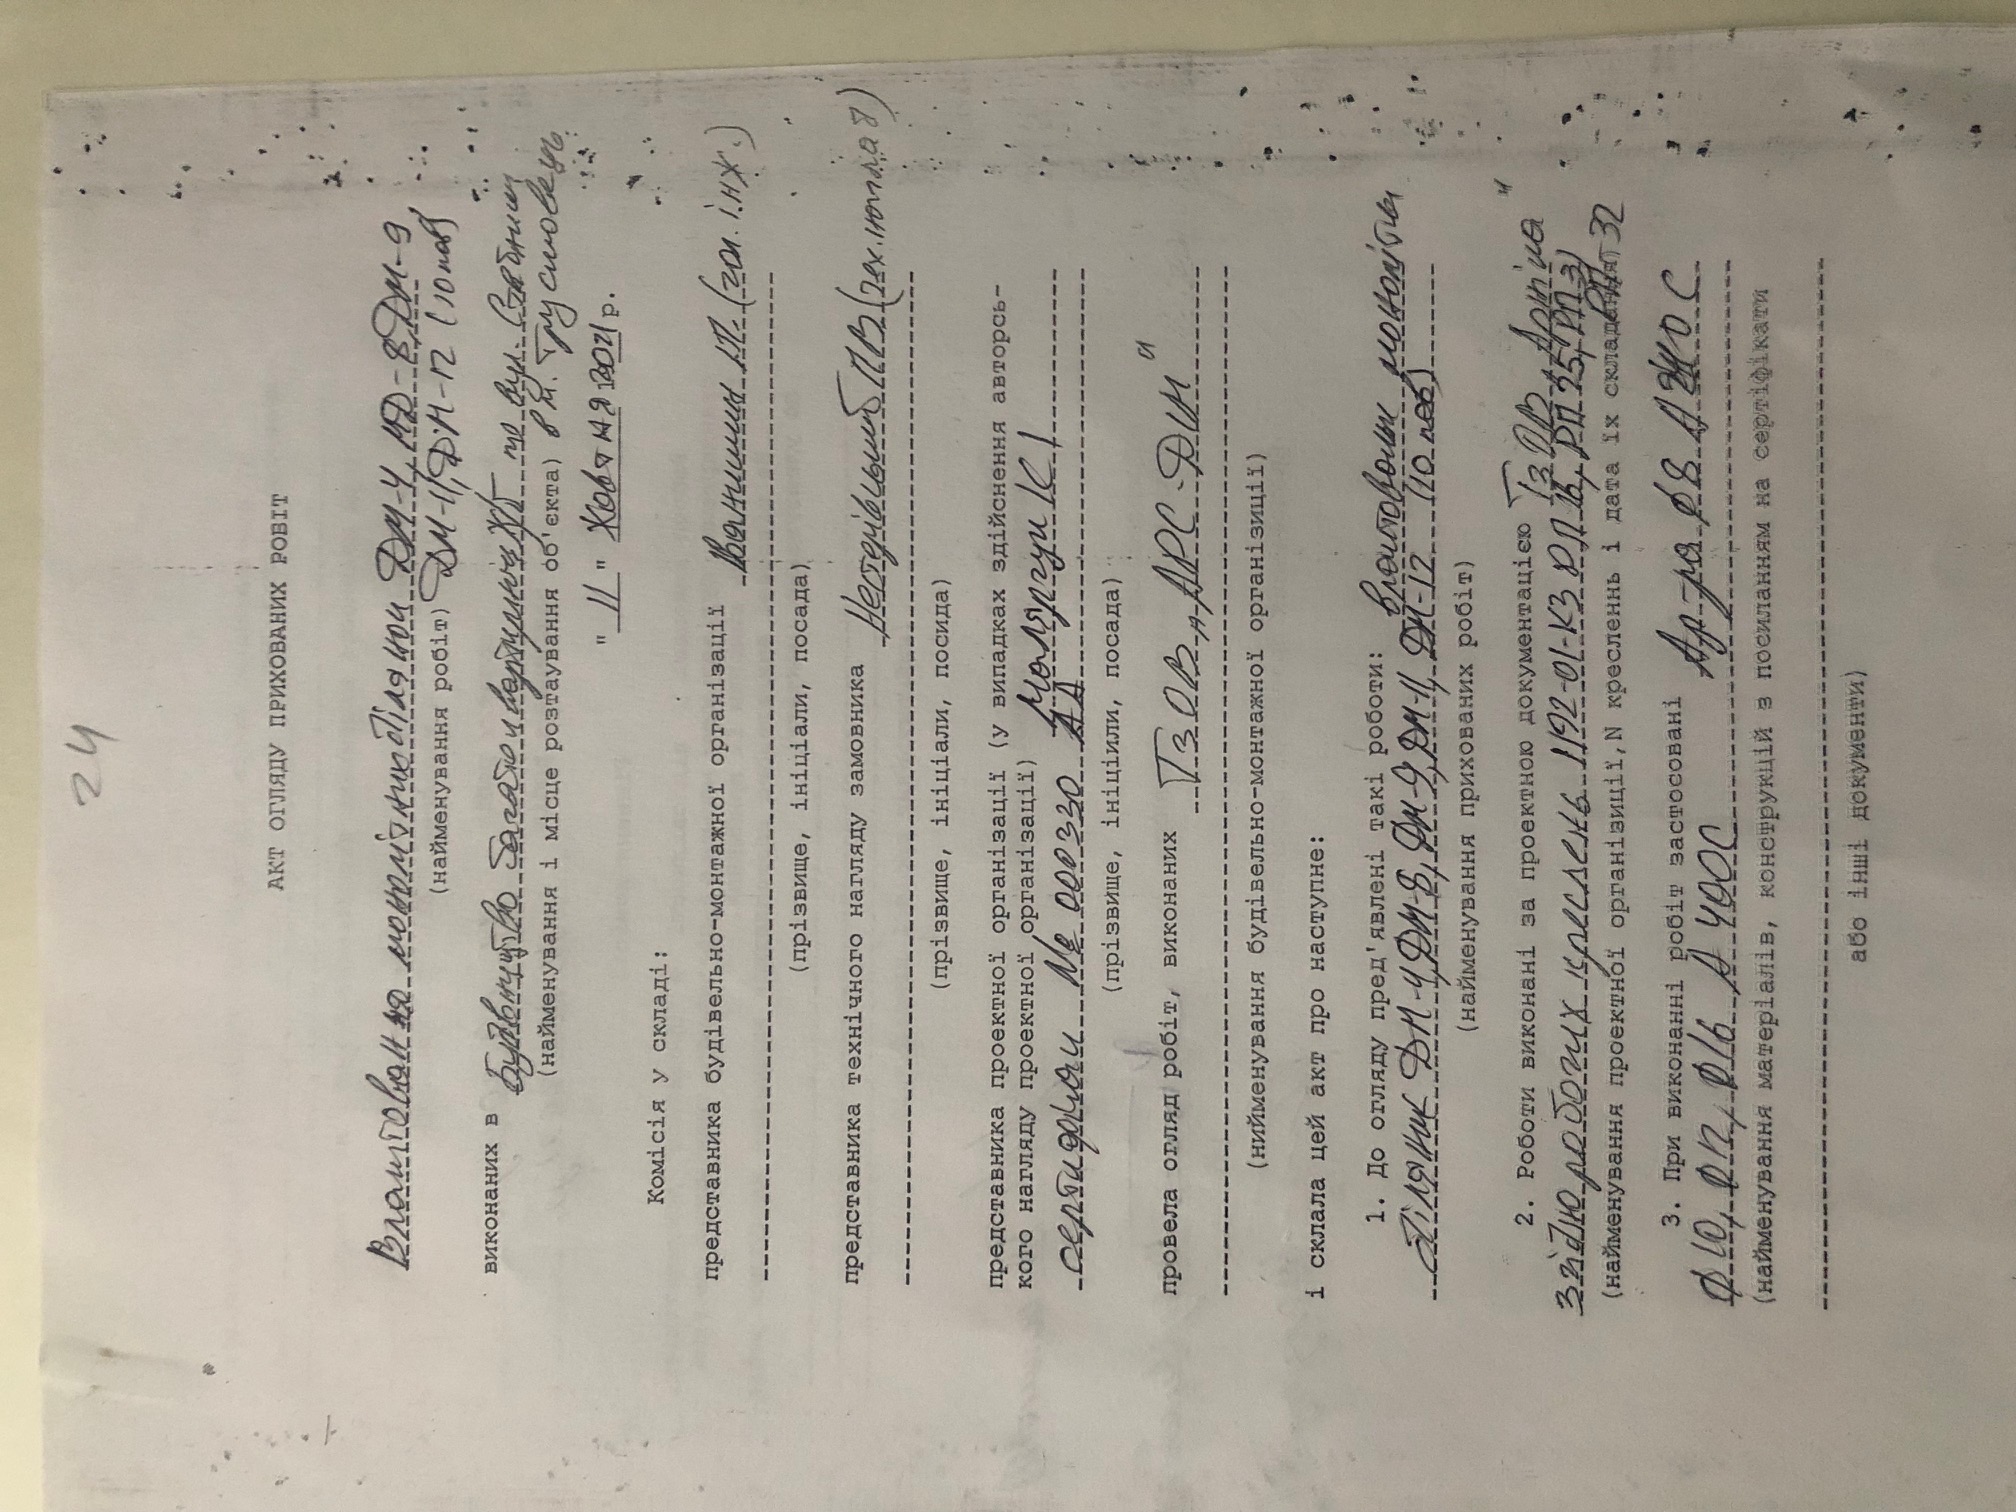 24
АКТ ОГЛЯДУ ПРИХОВАНИХ РОБІТ
Влаштування монолітних ділянок ДМ-4, МД-8, ДМ-9
(найменування робіт) ДМ-11, ДМ-12 (10 пов)
виконаних в Будівництво багатоквартирного по вул.
(найменування і місце розтаування об'єкта) в м. Трускавець
" 11 " жовтня 2021 р.
Комісія у складі:
представника будівельно-монтажної організації (гол. інж.)
(прізвище, ініціали, посада)
представника технічного нагляду замовника (тех.нагляд)
(прізвище, ініціали, посида)
представника проектної організації (у випадках здійснення авторсь-
кого нагляду проектної організації)
сертифікат № 000230
(прізвище, ініціили, посада)
провела огляд робіт, виконаних ТзОВ „АРС-ДИМ"
(нийменування будівельно-монтажної організиції)
і склала цей акт про наступне:
1. До огляду пред'явлені такі роботи: влаштовані монолітні
ділянки ДМ-4, ДМ-8, ДМ-9, ДМ-11, ДМ-12 (10 пов)
(найменування прихованих робіт)
2. Роботи виконані за проектною документацією ТзОВ
згідно робочих креслень 1192-01-КЗ
(найменування проектної організиції,N креслень і дата їх складання) 32
3. При виконанні робіт застосовані Ар-ра
Ф10, А400С
(найменування матеріалів, конструкцій з посиланням на сертіфікати
або інші документи)